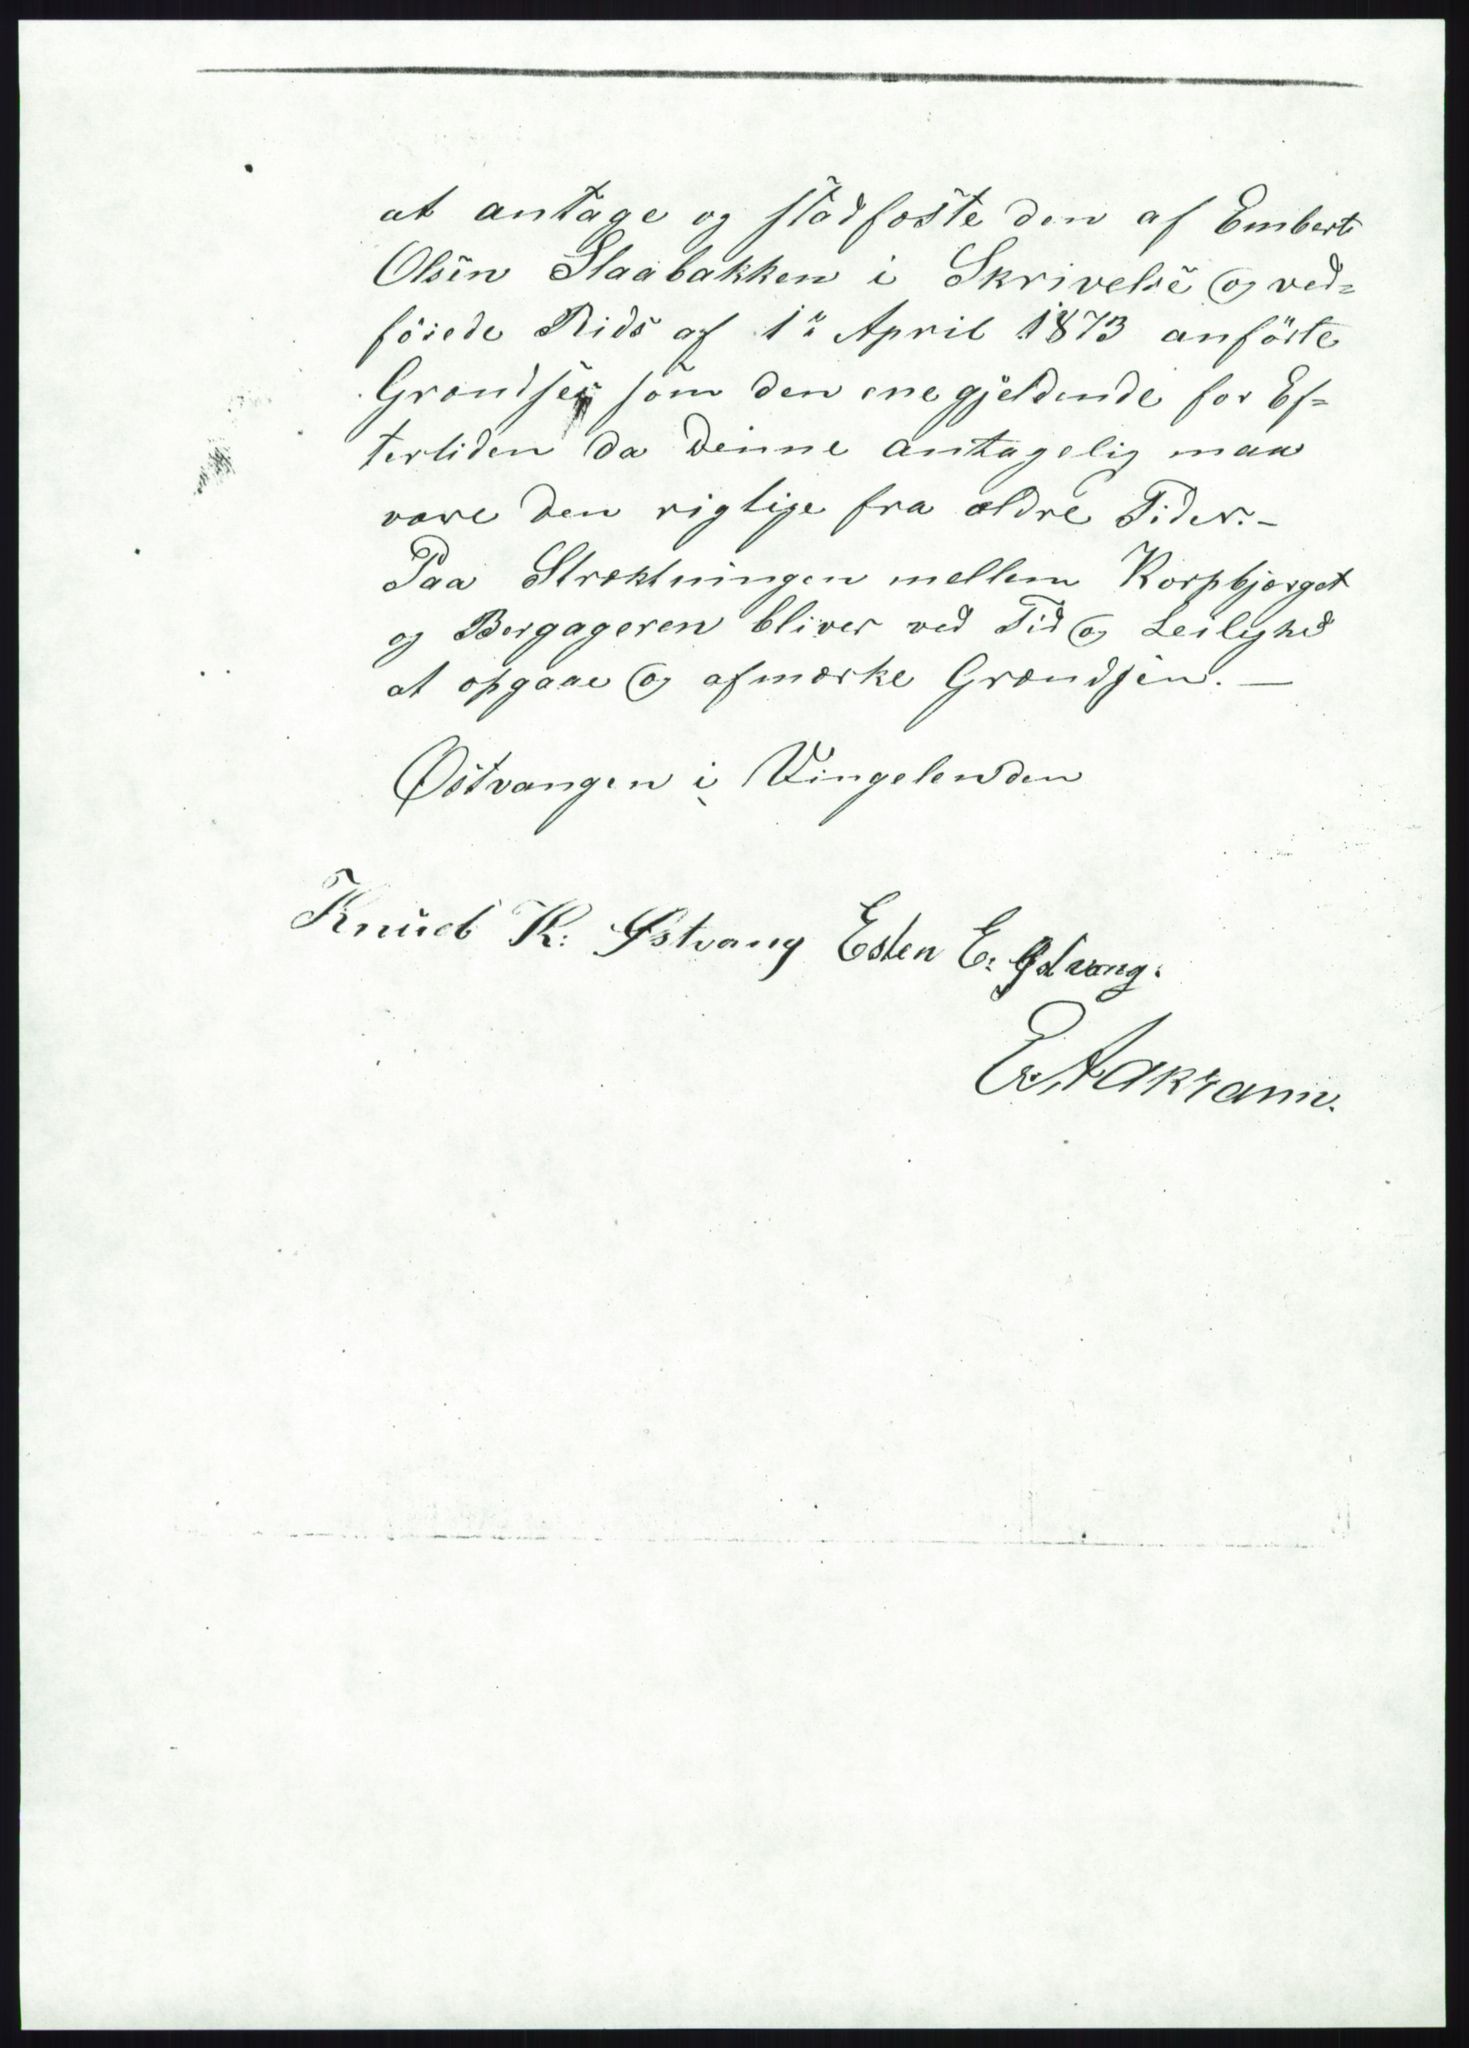 at antage og stadfæste den af Embert
Olsen Slaabakken i Skrivelse og ved=
føiede Rids af 1ste April 1873 anførte
Grændse som den ene gjeldende for Ef=
tertiden da denne antagelig maa
være den rigtige fra ældre Tider.—
Paa Strækningen mellem Korpbjerget
og Bergageren bliver ved Tid og Leilighed
at opgaae og afmærke Grændsen.—
Østvangen i Vingelen den
Knud K: Østvang Esten E: Østvang.
E. Aakrann.